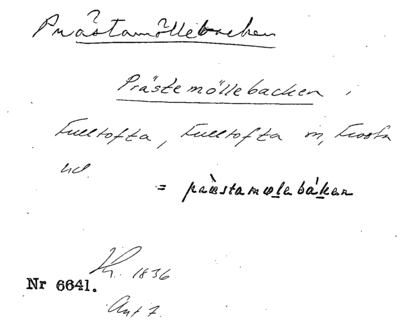 Prästamöllebacken
Prästemöllebacken i
Fulltofta, Fulltofta sn, Frosta
hd.
= prästamølebákan
1836
Nr 6641.
Ant 7.